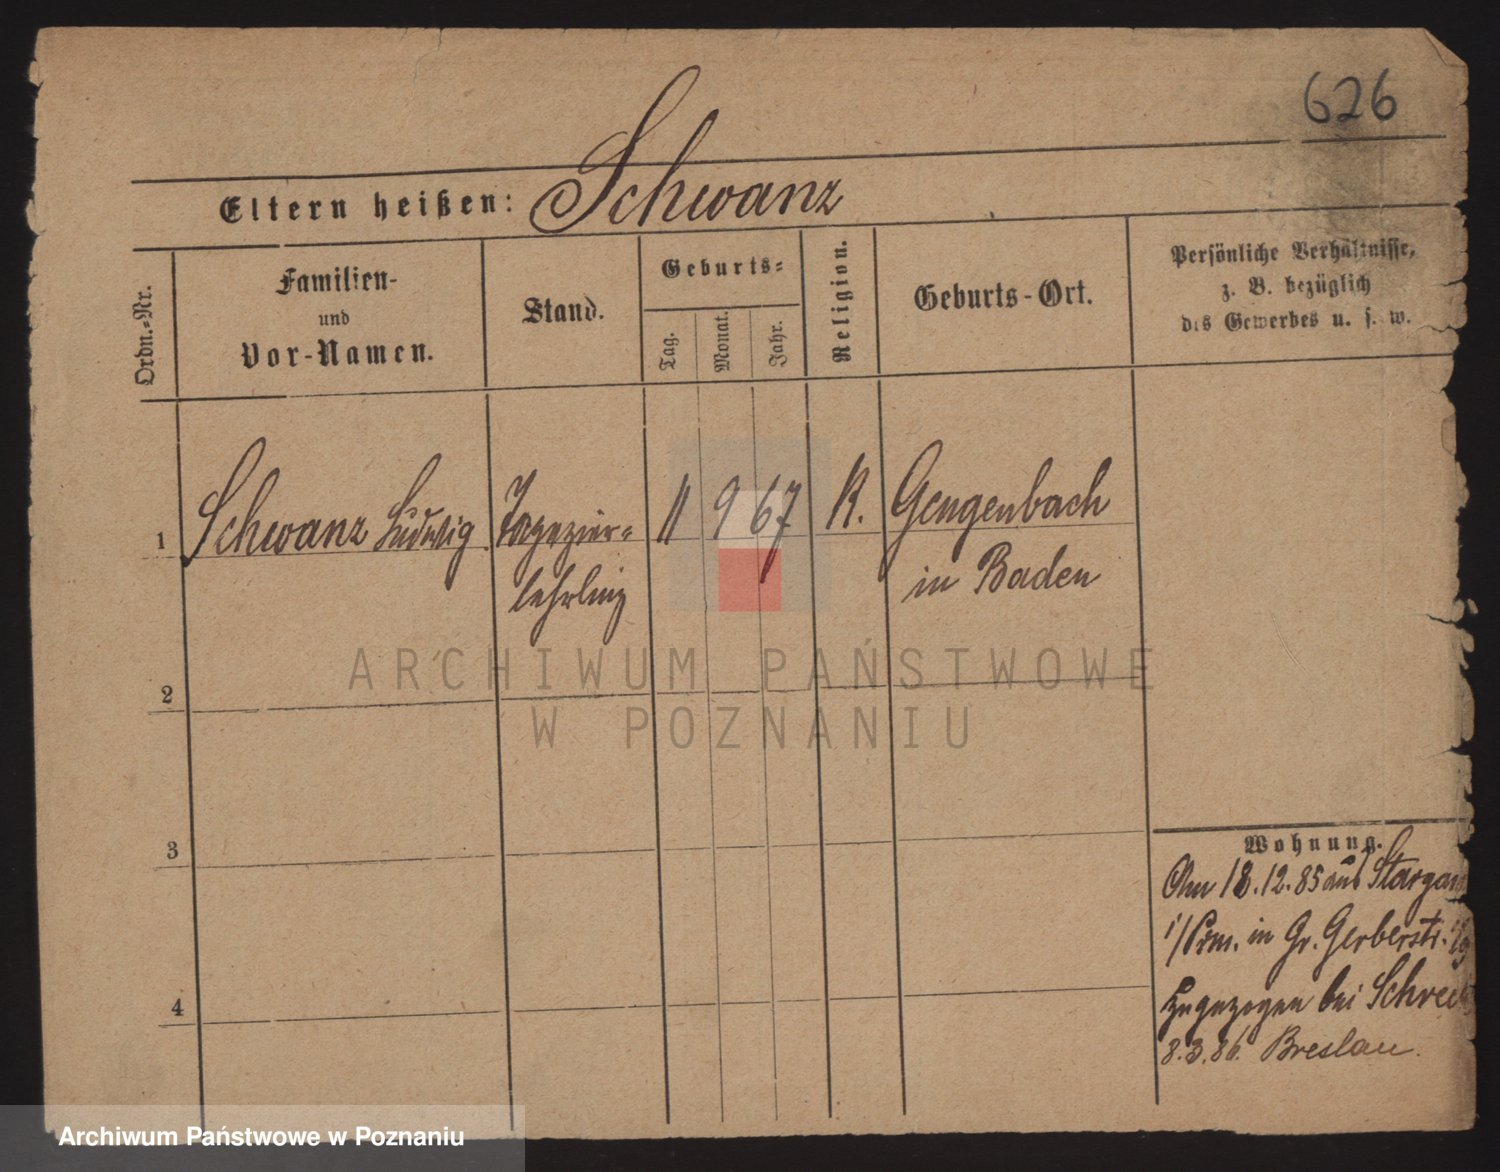 626
Eltern heißen: Schwanz
Ordn.-Nr.
Familien-
und
Vor-Namen.
Stand.
Geburts-
Tag.
Monat.
Jahr.
Religion.
Geburts-Ort.
Persönliche Verhältnisse,
z. B. bezüglich
des Gewerbes u. s. w.
1 Schwanz Ludwig Tapezier- 11 9 67 K. Gengenbach
lehrling in Baden
2
3
4
Wohnung.
Am 18.12.85 aus
i/Pom. in Gr. Gerberstr.
zugezogen bei
8.3.86. Breslau.
ARCHIWUM PAŃSTWOWE
W POZNANIU
Archiwum Państwowe w Poznaniu